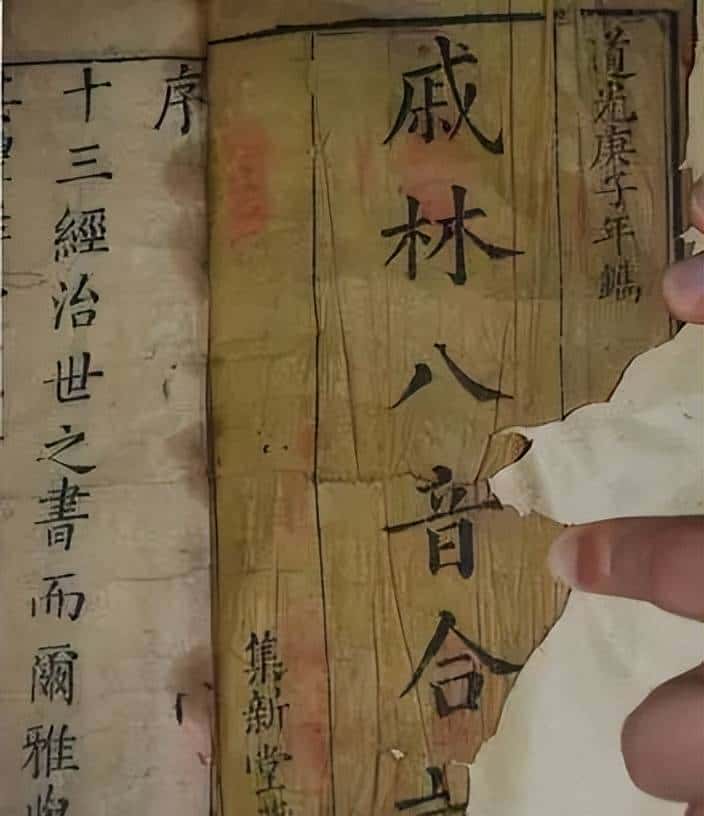 道光庚子年鐫
戚林八音合
集新堂
序
十三經治世之書而爾雅